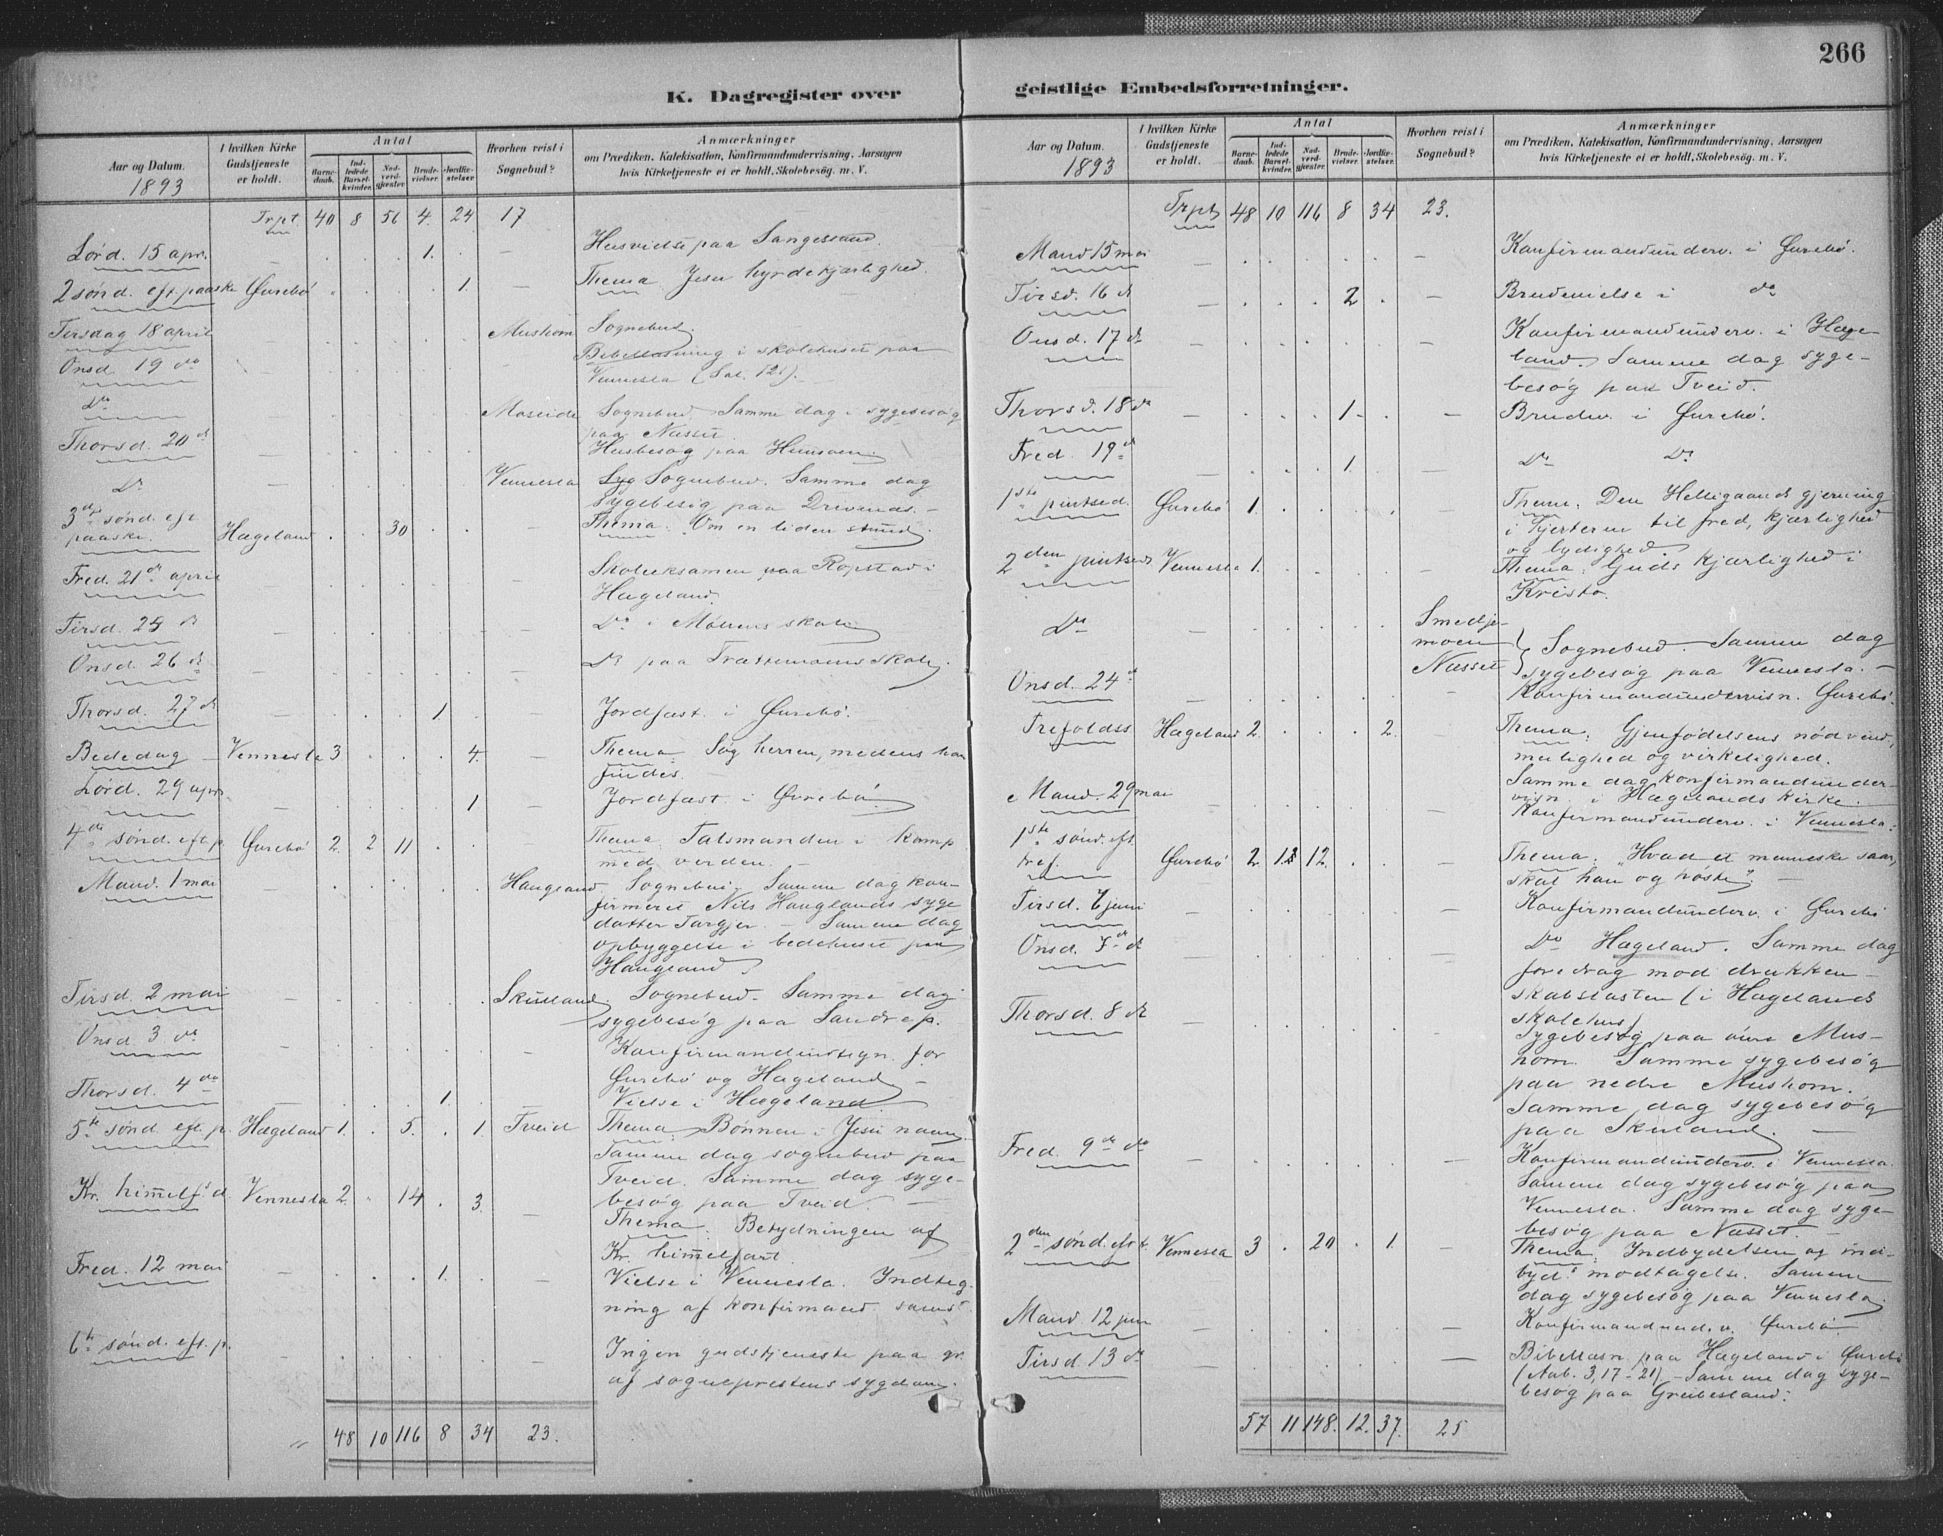 266
K. Dagregister over
Aar og Datum.
1893
I hvilken Kirke
Gudstjeneste
er holdt.
Antal
Barne-
daab.
Ind-
ledede
Barsel-
kvinder.
Nad-
verd-
gjester.
Brude-
vielser.
Jordfæ-
stelser.
Hvorhen reist i
Sognebud?
Anmærkninger
om Prædiken, Katekisation, Konfirmandundervisning, Aarsagen
hvis Kirketjeneste ei er holdt, Skolebesøg. m. V.
Trpt. 40 8 56 4. 24 17
Lørd. 15 apr. 1. Husvielse paa
2 sønd. eft. paaske Øurebø 1. Thema: Jesu hyrdekjærlighed.
Tirsdag 18 april Mushom Sognebud.
Onsd 19 do Bibellæsning i skolehuset paa
Vennesla (Sal. 121).
Do Moseide Sognebud. Samme dag i sygebesøg
paa Næsset.
Thorsd. 20 d Husbesøg paa Hunsøen.
Do Vennesla Sognebud. Samme dag
sygebesøg paa Drivenes.
3die sønd. eft. paaske. Hægeland 30 Thema: Om en liden stund.
Fred. 21 de april Skoleeksamen paa Ropstad i
Hægeland.
Tirsd. 25 d Do i Moseens skole
Onsd. 26 d Do paa Trættemoens skole.
Thorsd. 27 d 1 Jordfæst. i Øurebø.
Bededag Vennesla 3 4. Thema: Søg herren, medens han
findes.
Lørd. 29 apr. 1 Jordfæst. i Øvrebø
4de sønd. eft. p. Øurebø 2. 2 11 Thema: Talsmanden i kamp
med verden.
Mand. 1 mai Haugland Sognebud. Samme dag kon-
firmeret Nils Hauglands syge
datter Targjer. – Samme dag
opbyggelse i bedehuset paa
Haugland.
Tirsd. 2 mai Skusland Sognebud. Samme dag
sygebesøg paa Sandrip.
Onsd 3 do Konfirmandindtegn. for
Øurebø og Hægeland
Thorsd. 4 do 1. Vielse i Hægeland
5te sønd eft. p. Hægeland 1. 5. 1. Tveid Thema: Bønnen i Jesu navn.
Samme dag sognebud paa
Tveid. Samme dag syge-
besøg paa Tveid.
Kr. himmelf. d. Vennesla 2. 14 3. Thema: Betydningen af
Kr. himmelfart.
Fred. 12 mai 1. Vielse i Vennesla. Indteg-
ning af konfirmand. samst.
6te sønd. eft. p. Ingen gudstjeneste paa gr.
af sogneprestens sygdom.
48 10 116 8 34 23.
geistlige Embedsforretninger.
Aar og Datum.
1893
I hvilken Kirke
Gudstjeneste
er holdt.
Antal
Barne-
daab.
Ind-
ledede
Barsel-
kvinder.
Nad-
verd-
gjester.
Brude-
vielser.
Jordfæ-
stelser.
Hvorhen reist i
Sognebud?
Anmærkninger
om Prædiken, Katekisation, Konfirmandundervisning, Aarsagen
hvis Kirketjeneste ei er holdt, Skolebesøg. m. V.
Trpt. 48 10 116 8 34 23.
Mand 15 mai Konfirmandunderv. i Øurebø.
Tirsd. 16 d 2 Brudevielse i do
Onsd. 17 d Konfirmandunderv. i Hæge-
land. Samme dag syge-
besøg paa Tveid.
Thorsd. 18 de 1. Brudev. i Øurebø.
Fred. 19 d 1. Do Do
1ste pintsed. Øurebø 1. Thema: Den Helligaands gjerning
i Hjerterne til fred, kjærlighed
og lydighed.
2den pintsed Vennesla 1. Thema: Guds kjærlighed i
Kristo.
Do Smedje-
moen
Næsset
Sognebud. Samme dag
sygebesøg paa Vennesla.
Onsd. 24 d Konfirmandundervisn. Øurebø.
Trefoldss Hægeland 2. 2. Thema: Gjenfødelsens nødvend.
mulighed og virkelighed.
Samme dag konfirmandunder-
visn. i Hægelands kirke.
Mand. 29 mai Konfirmandunderv. i Vennesla.
1ste sønd. eft.
tref. Øurebø 2 1 12. Thema: "Hvad et menneske saar,
skal han og høste".
Tirsd. 6 juni Konfirmandunderv. i Øurebø
Onsd. 7de d Do Hægeland. Samme dag
foredrag mod drukken-
skabslasten (i Hægelands
skolehus)
Thorsd. 8 d Sygebesøg paa øvre Mus-
hom. Samme sygebesøg
paa nedre Mushom.
Samme dag sygebesøg
paa Skusland.
Fred. 9de do Konfirmandunderv. i Vennesla.
Samme dag sygebesøg paa
Vennesla. Samme dag syge-
besøg paa Næsset.
2den sønd. eft. t. Vennesla 3 20 1. Thema: Indbydelsen og ind-
byds modtagelse. Samme
dag sygebesøg paa Vennesla.
Mand 12 jun Konfirmandundv. Øurebø
Tirsd. 13 d Bibellæsn. paa Hægeland i Øurebø
(Aab. 3, 17-21) – Samme dag syge-
besøg paa Greibesland.
57 11 148. 12. 37. 25